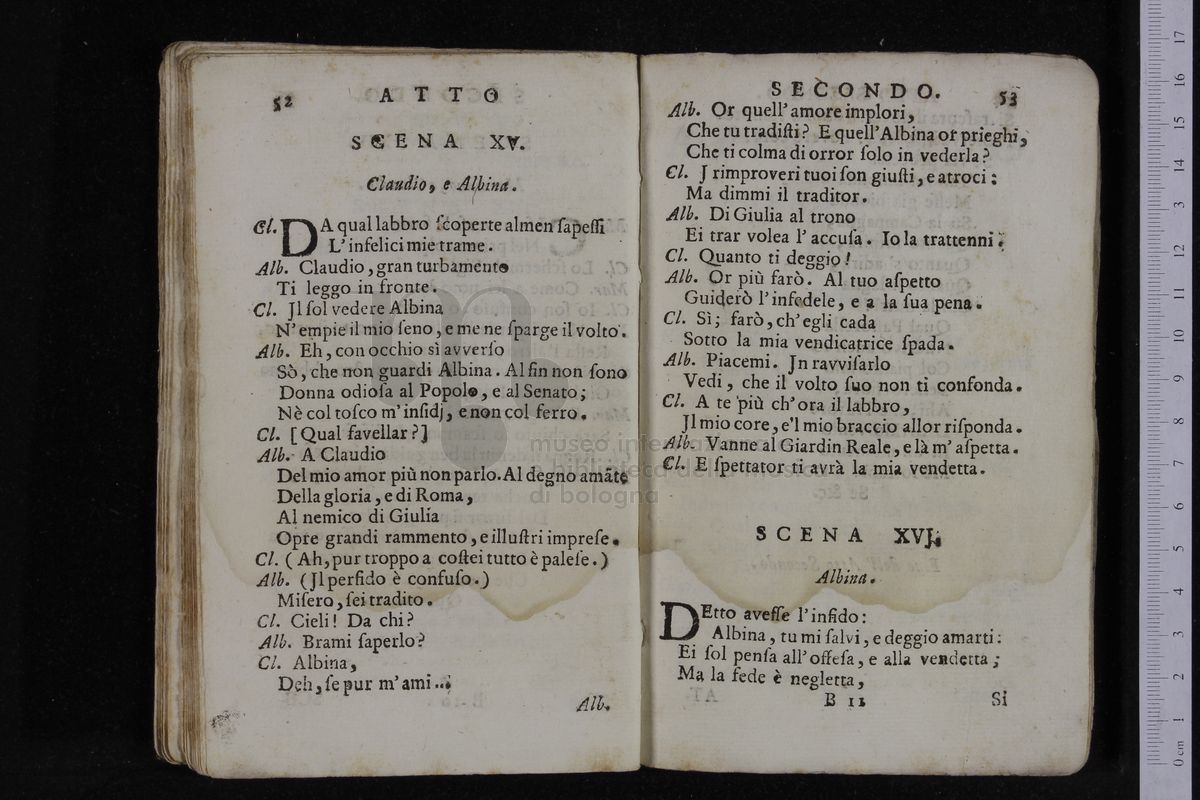 52 ATTO
SCENA XV.
Claudio, e Albina.
Cl. DA qual labbro ſcoperte almen ſapeſſi
L'infelici mie trame.
Alb. Claudio, gran turbamento
Ti leggo in fronte.
Cl. Jl ſol vedere Albina
N'empie il mio ſeno, e me ne ſparge il volto.
Alb. Eh, con occhio sì avverſo
Sò, che non guardi Albina. Al fin non ſono
Donna odioſa al Popolo, e al Senato;
Nè col toſco m'inſidj, e non col ferro.
Cl. [Qual favellar?]
Alb. A Claudio
Del mio amor più non parlo. Al degno amāte
Della gloria, e di Roma,
Al nemico di Giulia
Opre grandi rammento, e illuſtri impreſe.
Cl. (Ah, pur troppo a coſtei tutto è paleſe.)
Alb. (Jl perfido è confuſo.)
Miſero, ſei tradito.
Cl. Cieli! Da chi?
Alb. Brami ſaperlo?
Cl. Albina,
Deh, ſe pur m'ami...
Alb.
SECONDO. 53
Alb. Or quell'amore implori,
Che tu tradiſti? E quell'Albina or prieghi,
Che ti colma di orror ſolo in vederla?
Cl. J rimproveri tuoi ſon giuſti, e atroci;
Ma dimmi il traditor.
Alb. Di Giulia al trono
Ei trar volea l'accuſa. Io la trattenni.
Cl. Quanto ti deggio!
Alb. Or più farò. Al tuo aſpetto
Guiderò l'infedele, e a la ſua pena.
Cl. Sì; farò, ch'egli cada
Sotto la mia vendicatrice ſpada.
Alb. Piacemi. Jn ravviſarlo
Vedi, che il volto ſuo non ti confonda.
Cl. A te più ch'ora il labbro,
Jl mio core, e'l mio braccio allor riſponda.
Alb. Vanne al Giardin Reale, e là m'aſpetta.
Cl. E ſpettator ti avrà la mia vendetta.
SCENA XVJ.
Albina.
DEtto aveſſe l'infido:
Albina, tu mi ſalvi, e deggio amarti:
Ei ſol penſa all'offeſa, e alla vendetta;
Ma la fede è negletta,
B 11 Si
museo internazionale
e biblioteca della musica
di bologna
0 cm 1 2 3 4 5 6 7 8 9 10 11 12 13 14 15 16 17